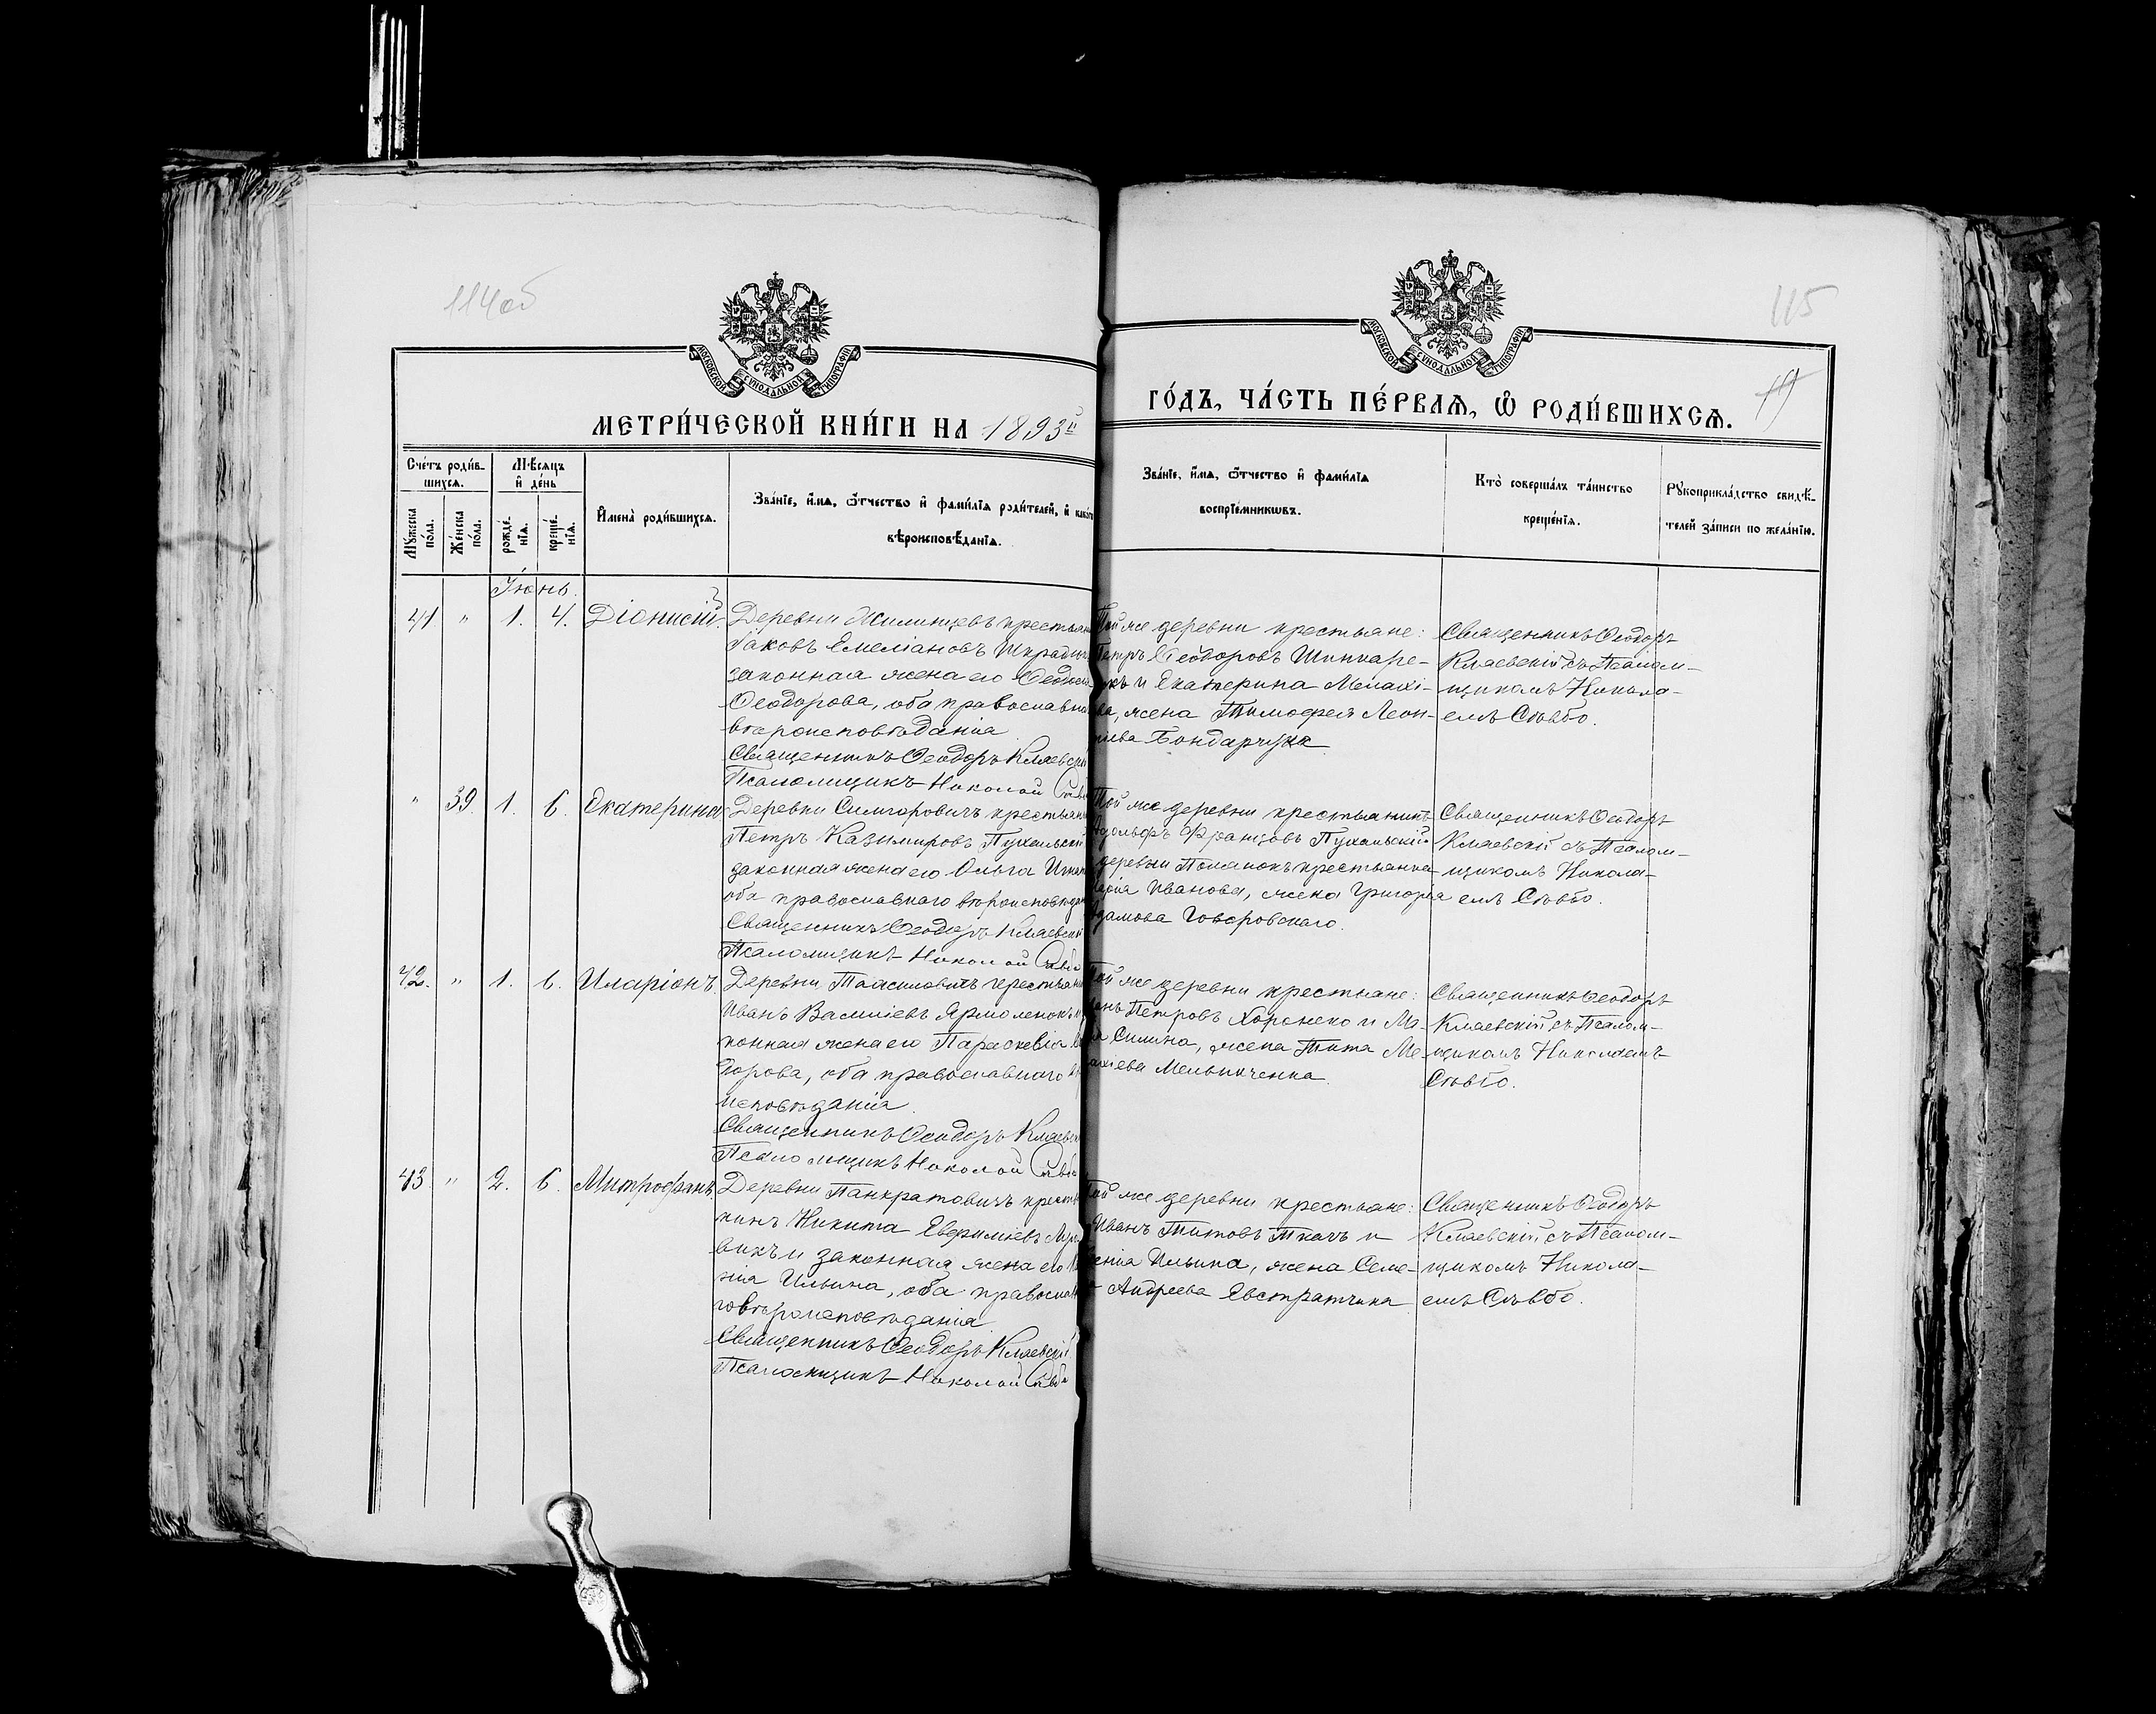 114об
115
МОСКОВСКОЙ СѴНОДАЛЬНОЙ ТИПОГРАФІИ
МОСКОВСКОЙ СѴНОДАЛЬНОЙ ТИПОГРАФІИ
МЕТРИ́ЧЕСКОЙ КНИ́ГИ НА 1893й
ГО́ДЪ, ЧА́СТЬ ПЕ́РВАѦ, Ѽ РОДИ́ВШИХСѦ.
Сче́тъ роди́в-
шихсѧ.
Мѣ́сѧцъ
и҆ де́нь
Мꙋ́жеска
по́ла.
Же́нска
по́ла.
рожде́-
нїѧ.
креще́-
нїѧ.
И҆мена̀ роди́вшихсѧ.
Зва́нїе, и҆́мѧ, ѻ҆́тчество и҆ фами́лїѧ роди́телей, и҆
вѣроисповѣ́данїѧ.
Зва́нїе, и҆́мѧ, ѻ҆́тчество и҆ фами́лїѧ
воспрїе́мникѡвъ.
Кто̀ соверша́лъ та́инство
креще́нїѧ.
Рꙋкоприкла́дство свидѣ́-
телей за́писи по жела́нїю.
Іюнь.
41 " 1. 4. Діонисій.
Деревни крестьян
Іаковъ Емеліановъ
законная жена его
Ѳеодорова, оба православна
вѣроисповѣданія
Священникъ Ѳеодоръ Кляевскі
Псаломщикъ Николай
Той же деревни крестьяне:
Петръ Ѳеодоровъ Шинкаре-
къ и Екатерина Малахі-
ва, жена Тимоѳея Леон-
тіева Бондарчука
Священникъ Ѳеодоръ
Кляевскій съ Псалом-
щикомъ Никола-
емъ
" 39 1. 6. Екатерина
Деревни крестьян
Петръ Казимировъ Пухальскій
законная жена его Ольга
оба православнаго вѣроисповѣдан
Священникъ Ѳеодоръ Кляевскі
Псаломщикъ Николай
Той же деревни крестьянинъ
Адольфъ Францовъ Пухальскій
деревни крестьянка
Марія Иванова, жена Григорія
Адамова Говоровскаго.
Священникъ Ѳеодоръ
Кляевскій съ Псалом-
щикомъ Никола-
емъ
42. " 1. 6. Иларіонъ.
Деревни крестьян
Иванъ Василіевъ Ярмоленокъ
конная жена его Параскевія
дорова, оба православнаго
исповѣданія.
Священникъ Ѳеодоръ Кляевск
Псаломщикъ Николай
Той же деревни крестьяне:
Петровъ Хоронеко и Ма-
Силина, жена Тита Ме-
Мельниченка.
Священникъ Ѳеодоръ
Кляевскій съ Псалом-
щикомъ Николаемъ
43 " 2. 6. Митрофанъ.
Деревни Панкратовичъ кресть
нинъ Никита Евѳиміевъ
викъ и законная жена его
нія Ильина, оба православн
го вѣроисповѣданія
Священникъ Ѳеодоръ Кляевскій
Псаломщикъ Николай
Той же деревни крестьяне:
Иванъ Титовъ Ткачъ и
Ильина, жена Семе-
Андреева Евстратчика
Священникъ Ѳеодоръ
Кляевскій съ Псалом-
щикомъ Никола-
емъ